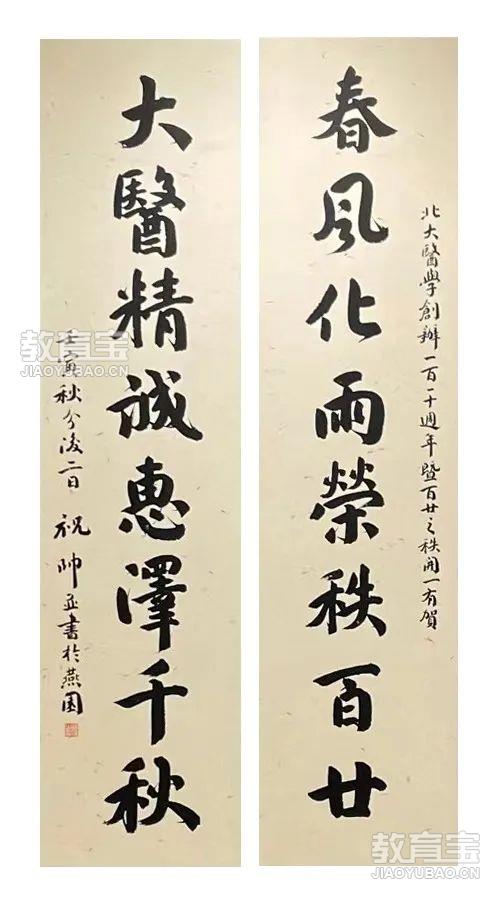 北大醫學創辦一百一十週年暨百廿之秩開一有賀
春風化雨榮秩百廿
大醫精誠惠澤千秋
壬寅秋分後二日 祝帥並書於燕園
教育宝
JIAOYUBAO.CN
教育宝
JIAOYUBAO.CN
教育宝
JIAOYUBAO.CN